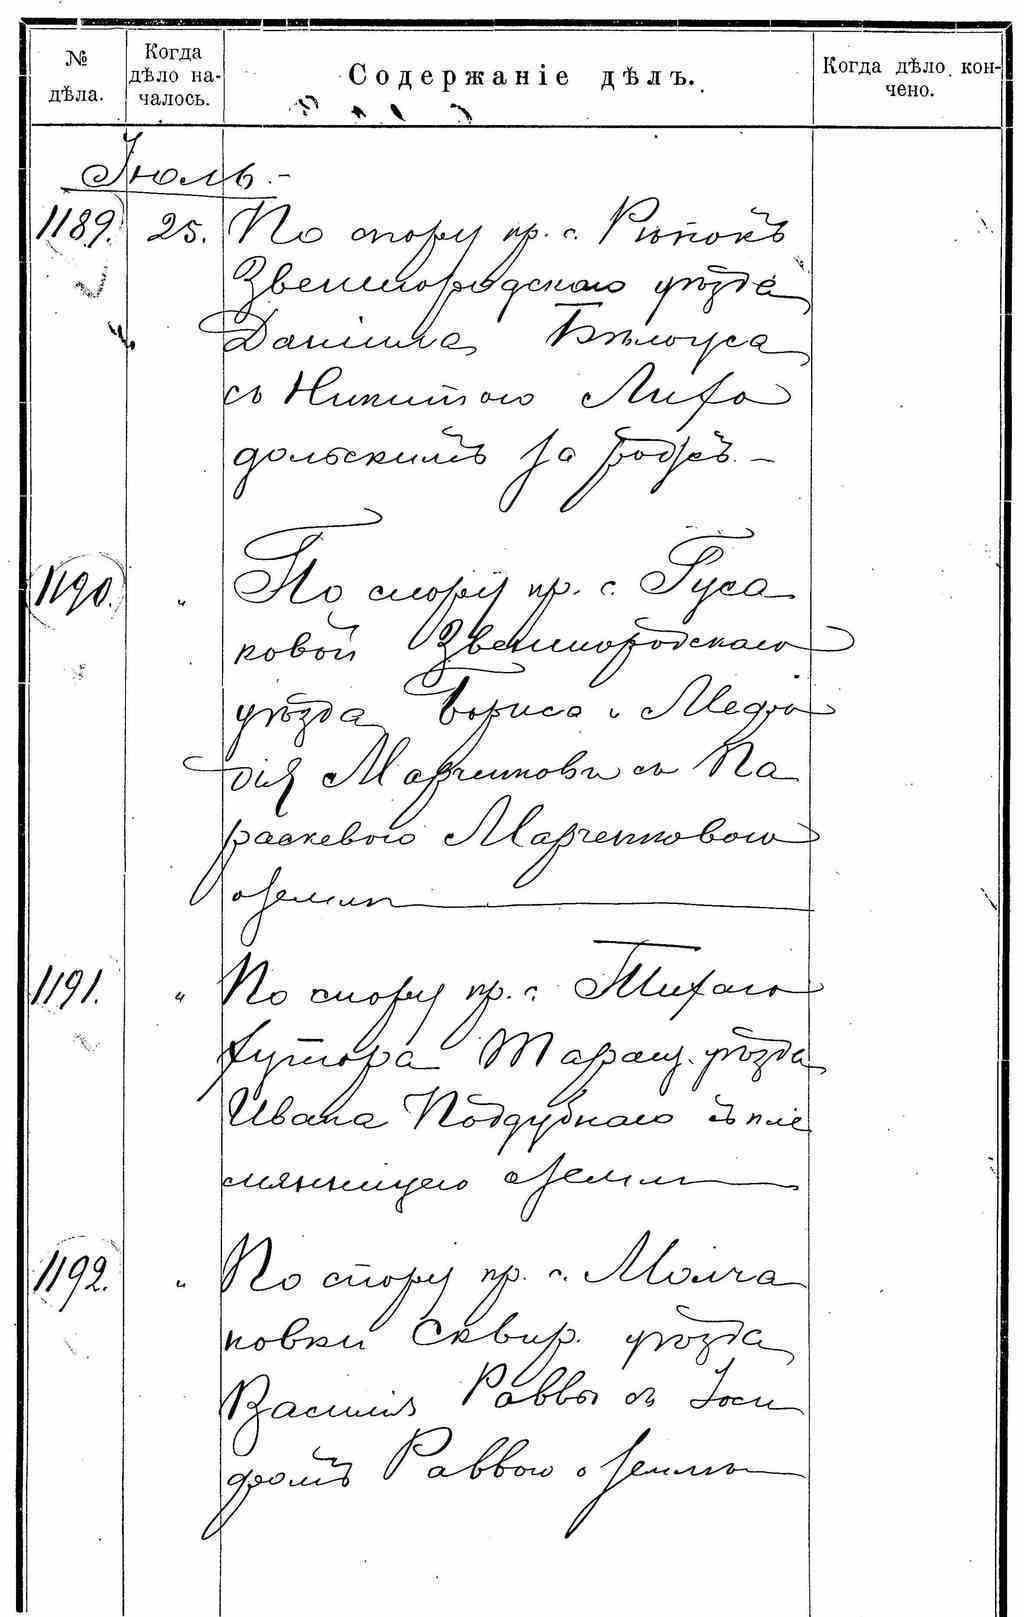 № дѣла.
Когда дѣло на-
чалось.
Содержаніе дѣлъ.
Когда дѣло кон-
чено.
Іюль.-
1189. 25. По спору кр. с. Рипокъ
Звенигородскаго уѣзда
Даніила Бѣлоуса
съ Никитою Лихо
дольскимъ за
1190. " По спору кр. с. Гуса
ковой Звенигородскаго
уѣзда Бориса и
Марченковъ съ Па
раскевою Марченковою
о землѣ
1191. " По спору кр. с. Тихаго
хутора Таращ. уѣзда
Ивана Поддубнаго съ пле
мянницею о землѣ
1192. " По спору кр. с. Молча
новки Сквир. уѣзда
Василія Раввы съ Іоси
фомъ Раввою о землѣ